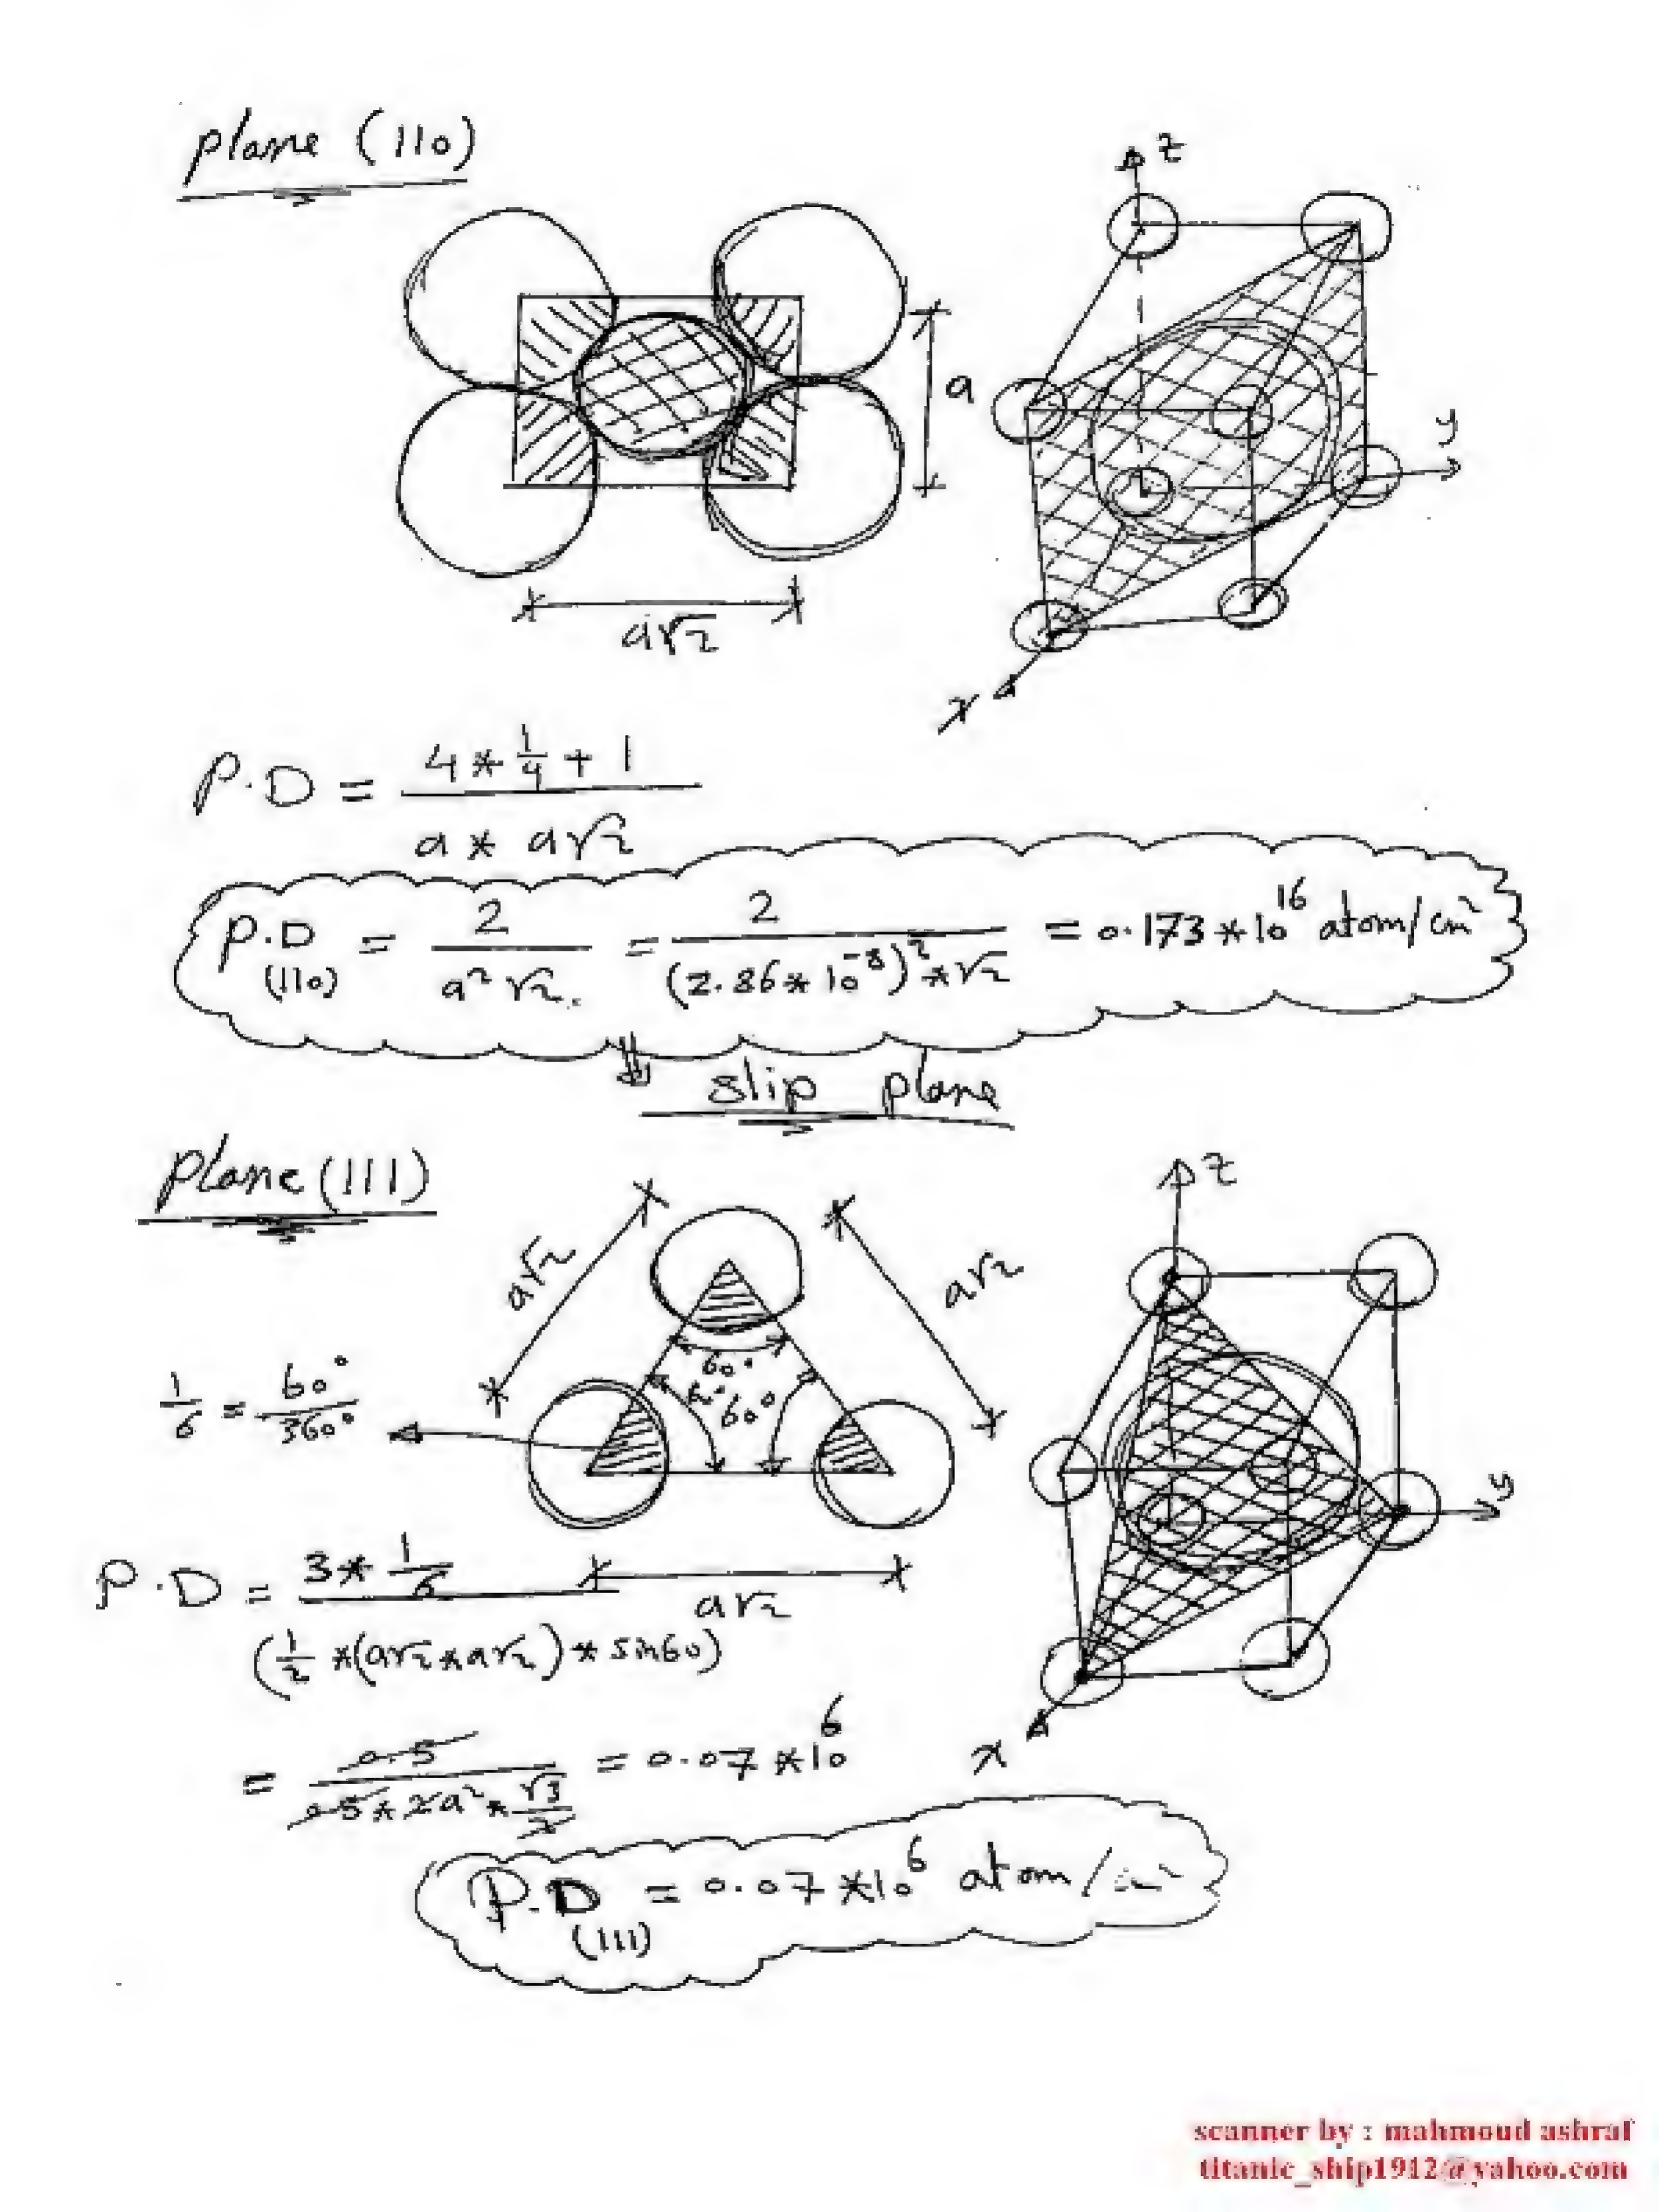 plane (110)
z
a
y
a√2
x
P.D = (4 * 1/4 + 1) / (a * a√2)
P.D (110) = 2 / (a² √2) = 2 / ((2.86 * 10⁻⁸)² * √2) = 0.173 * 10¹⁶ atom/cm²
slip plane
plane (111)
z
a√2
a√2
60°
60°
60°
1/6 = 60°/360°
y
P.D = (3 * 1/6) / (1/2 * (a√2 * a√2) * sin60)
a√2
x
= 0.5 / (0.5 * 2a² * √3/2) = 0.07 * 10⁶
P.D (111) = 0.07 * 10⁶ atom/cm²
scanner by : mahmoud ashraf
titanic_ship1912@yahoo.com